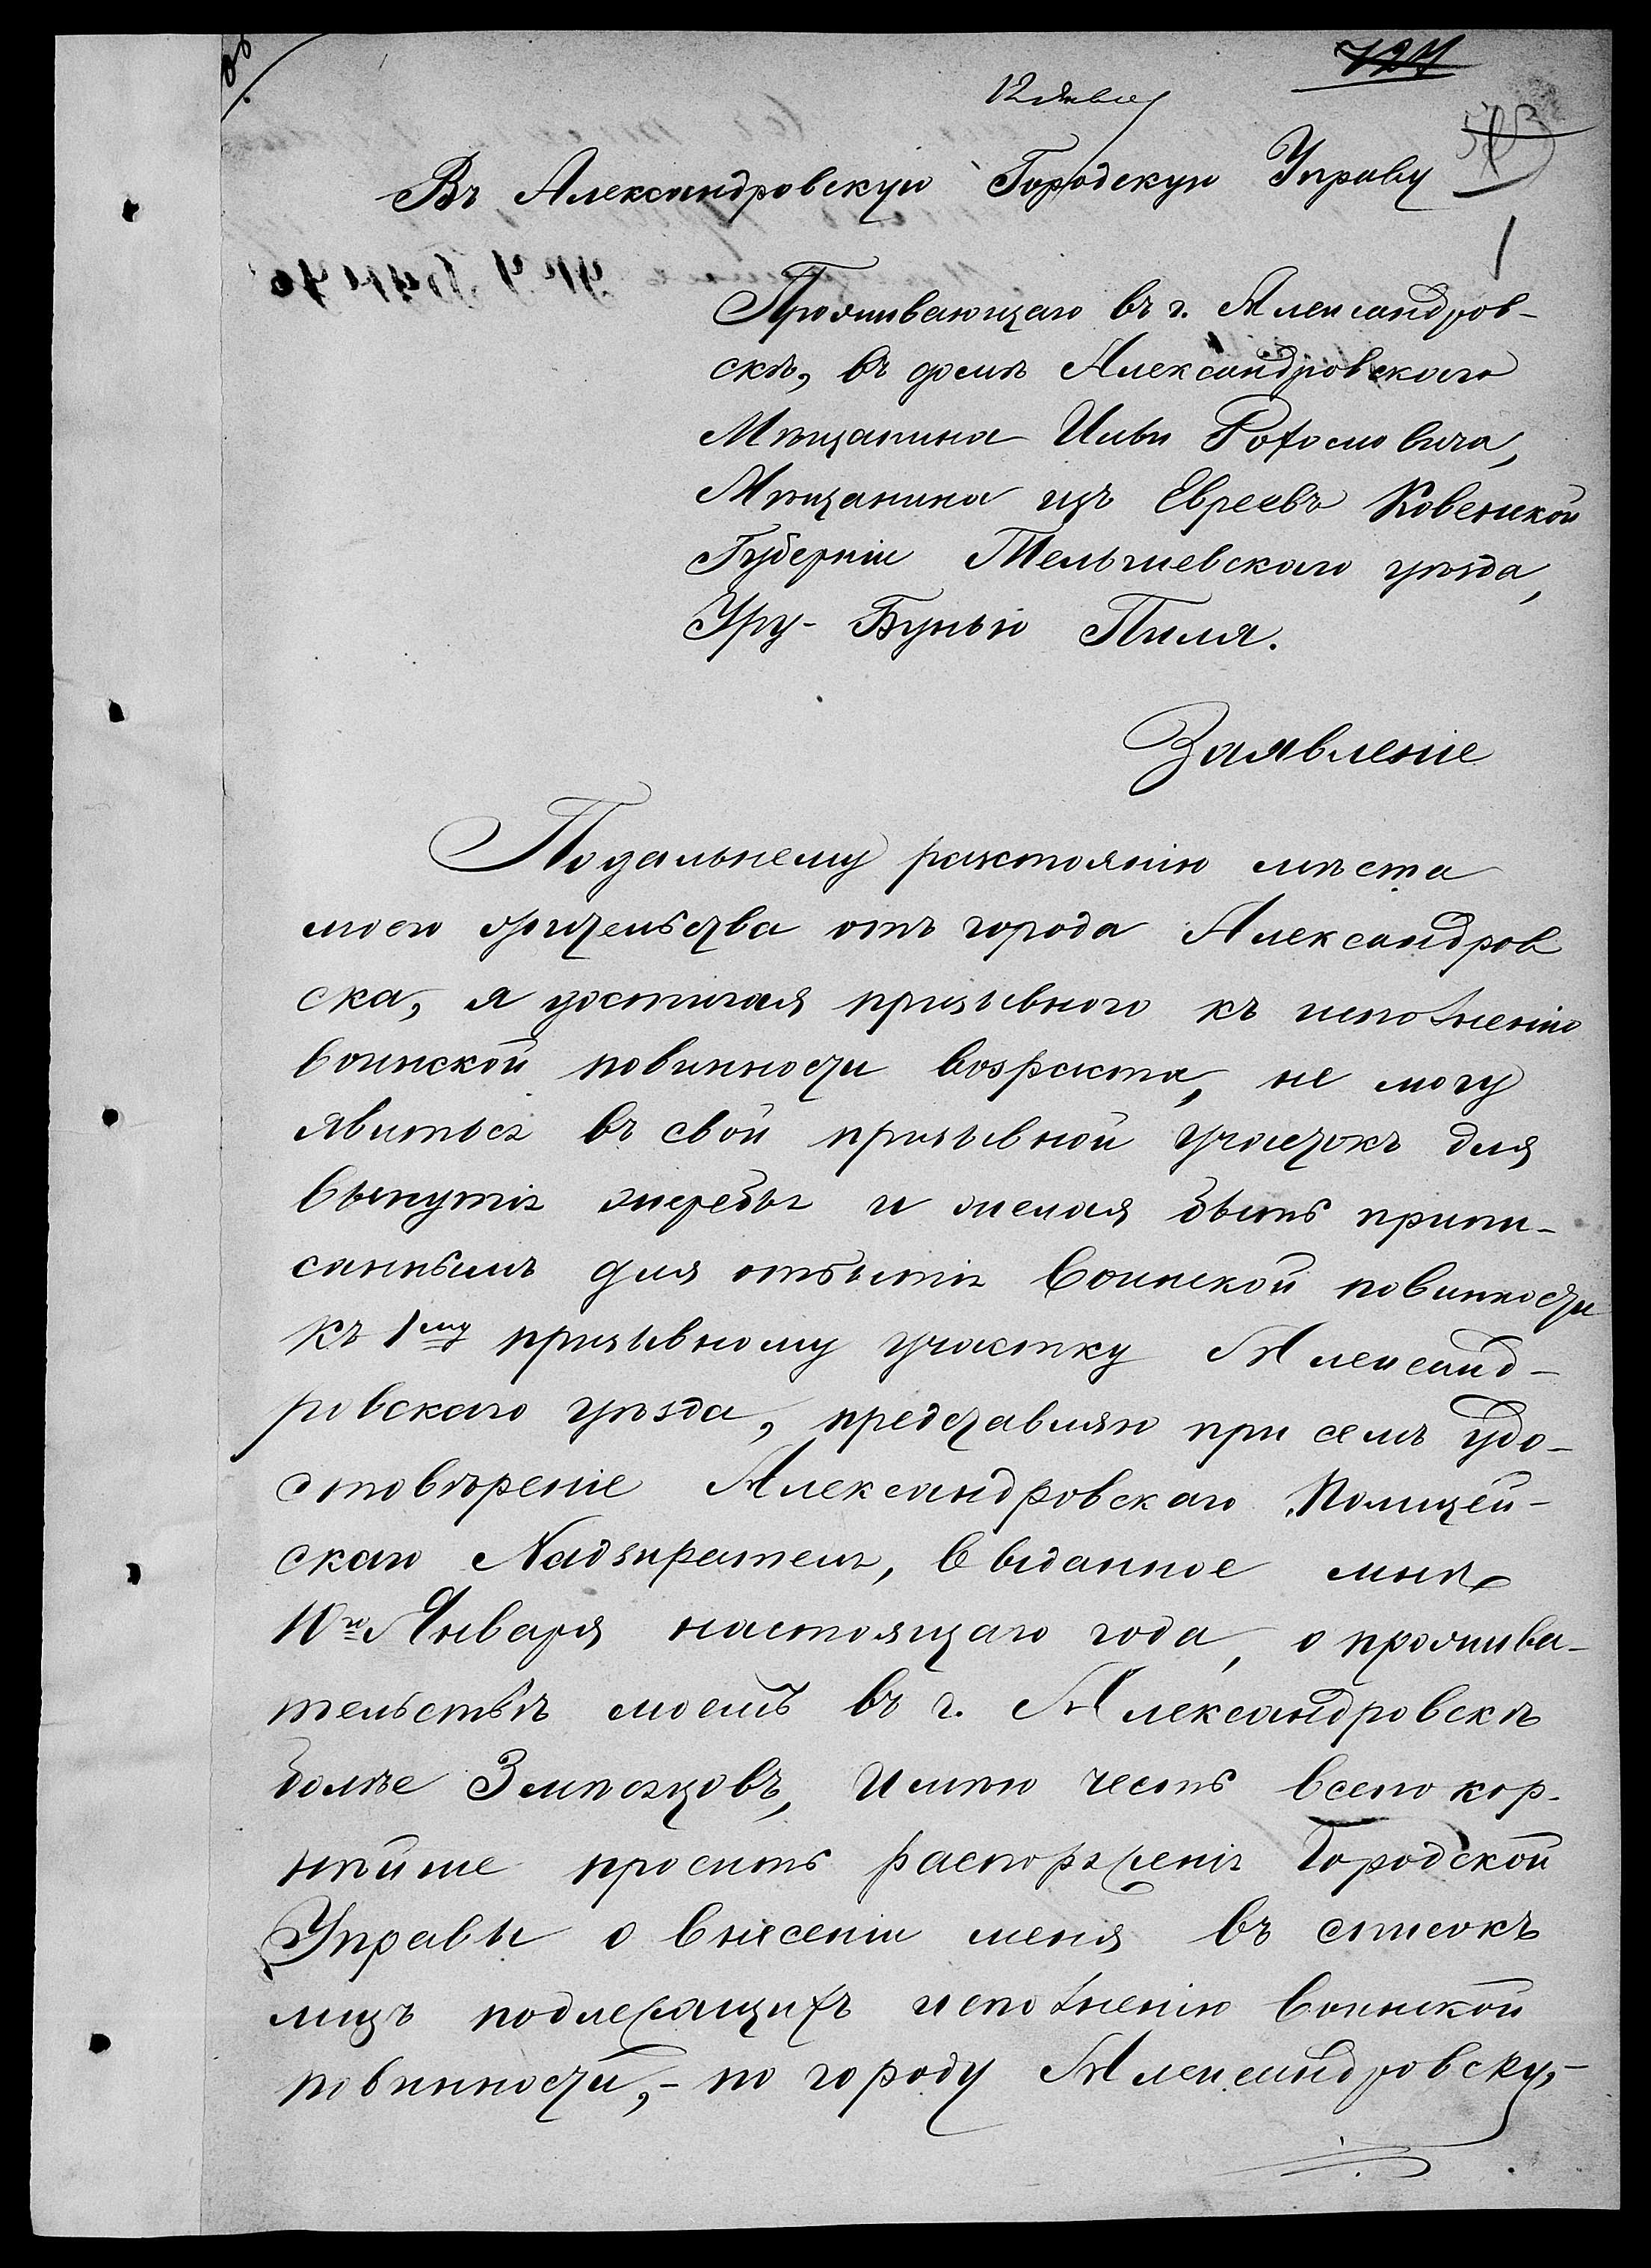 727
12 Январ
Въ Александровскую Городскую Управу
1
Проживающаго въ г. Александров-
скѣ, въ домѣ Александровскаго
Мѣщанина Ильи Рохомовича,
Мѣщанина изъ Евреевъ Ковенской
Губерніи Тельшевскаго уѣзда,
Уру-Бунью Пиля.
Заявленіе
По дальнему разстоянію мѣста
моего жительства отъ города Александров
ска, я достигая призывного къ исполненію
воинской повинности возраста, не могу
явиться въ свой призывной участокъ для
вынутія жеребья и желая быть припи-
саннымъ для отбытія воинской повинности
къ 1му призывному участку Александ-
ровскаго уѣзда, представляю при семъ удо-
стовѣреніе Александровскаго Полицей-
скаго Надзирателя, выданное мнѣ
10го Января настоящаго года, о прожива-
тельствѣ моемъ въ г. Александровскѣ
болѣе 3 мѣсяцовъ, имѣю честь всепокор-
нѣйше просить распоряженія Городской
Управы о внесеніи меня въ списокъ
лицъ подлежащихъ исполненію воинской
повинности,- по городу Александровску,-